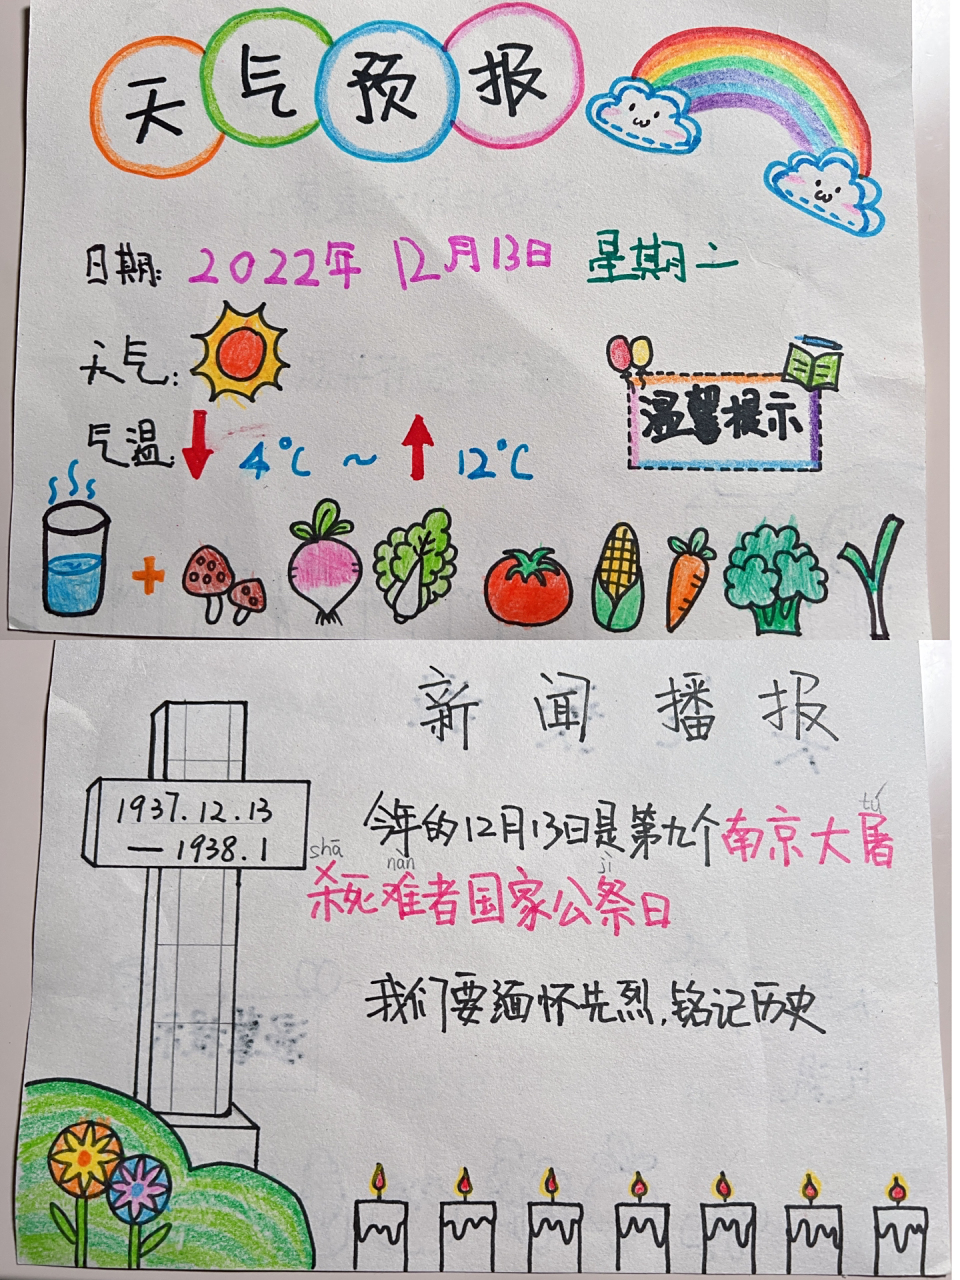 天气预报
日期: 2022年 12月13日 星期二
天气:
气温: 4°C ~ 12°C
温馨提示
新闻播报
1937.12.13
—1938.1
今年的12月13日是第九个南京大屠
tú
杀死难者国家公祭日
shā nàn jì
我们要缅怀先烈,铭记历史